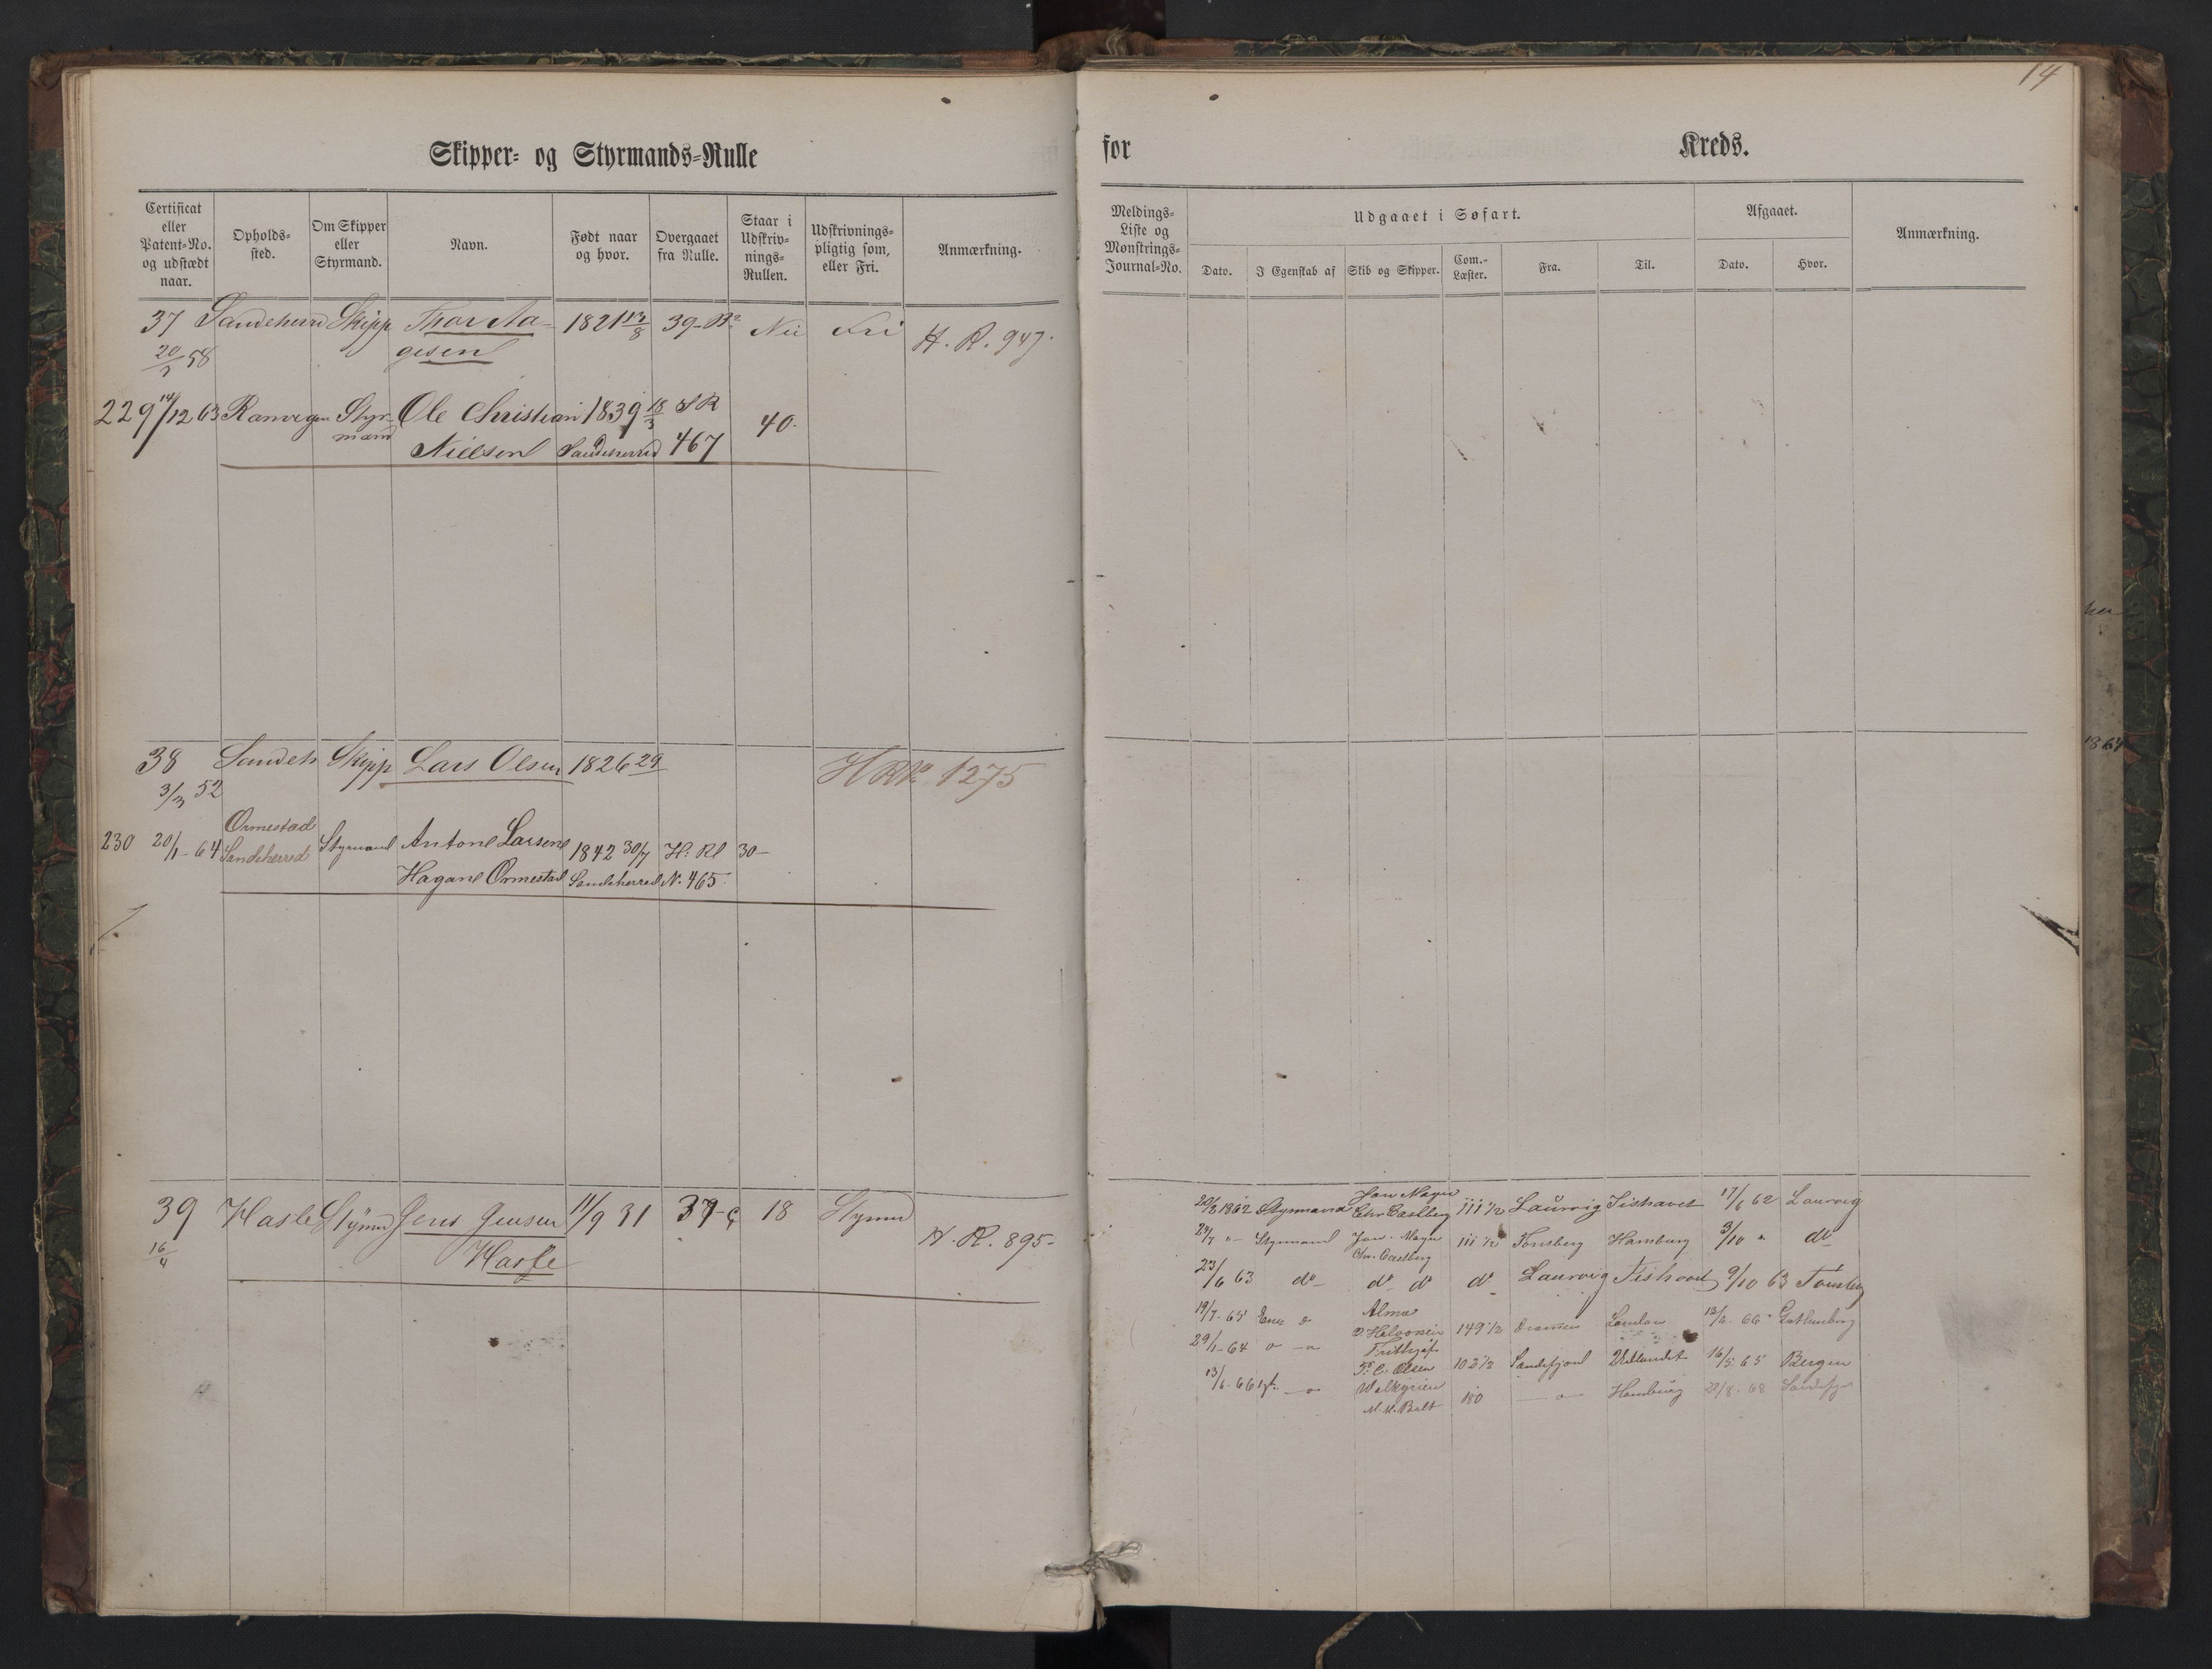 14
Skipper- og Styrmands-Rulle
for Kreds.
Certificat eller Patent-No. og udstædt naar.
Opholds-sted.
Om Skipper eller Styrmand.
Navn.
Født naar og hvor.
Overgaaet fra Rulle.
Staar i Udskriv-nings-Rullen.
Udskrivnings-pligtig som, eller Fri.
Anmærkning.
Meldings-Liste og Mønstrings-Journal-No.
Udgaaet i Søfart.
Afgaaet.
Anmærkning.
Dato. I Egenskab af Skib og Skipper. Com.-Læster. Fra. Til. Dato. Hvor.
37 Sandeherrd Skipp Thor Aa- 1821 13/8 39-B2 Nei Fri H. R. 947.
gesen
58
229 14/12 63 Ranvigen Styr- Ole Christian 1839 18/3 SR 40.
mand Nielsen Sandeherred 467
38 Sandeh Skipp Lars Olsen 1826 29 HR No 1275
3/3 52
Ormestad
230 20/1-64 Sandeherred Styrmand Anton Larsen 1842 30/7 H. Rl 30-
Hagane Ormestad Sandeherred N. 465.
39 Hasle Stymd Jens Jensen 11/9 31 37-c 18 Stymd H. R. 895-
16/4 Hasle
20/3 1862 Styrmand Chr Castberg 111 1/2 Laurvig Ishavet 17/6 62 Laurvig
24/7 "- Styrmand Jan Mayn 111 1/2 Tønsberg Hamburg 3/10 " do
Chr. Castberg
23/6 63 do- do do do Laurvig Ishavet 9/10 63 Tønsbg
19/7-65 Alma 149 1/2 Drammen London 66 Gothenborg
29/1-64 Frithjof
F. C. Olsen 102 1/2 Sandefjord Udlandet 16/5 65 Bergen
13/6-66 Walkyrien 180 Hamburg 68 Sandefjor
M. M. Bull
1864